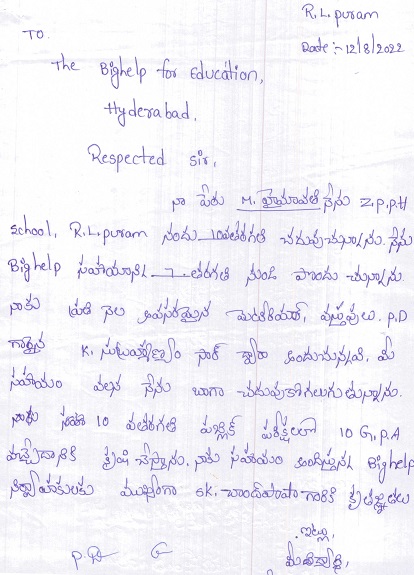 R.L.puram
TO
Date :- 12/8/2022
The Bighelp for Education,
Hyderabad,
Respected Sir,
నా పేరు M. హైమావతి నేను Z.P.P.H
school, R.L.puram నందు 10వతరగతి చదువుచున్నాను. నేను
Bighelp సహాయాన్ని 7 తరగతి నుండి పొందుచున్నాను.
నాకు ప్రతి నెల అవసరమైన మెటీరియల్, వస్తువులు. P.D
గారైన K. సుబ్రహ్మణ్యం సార్ ద్వారా అందుచున్నవి, మీ
సహాయం వలన నేను బాగా చదువుకోగలుగుతున్నాను.
నాకు 10 వతరగతి పబ్లిక్ పరీక్షలలో 10 G.P.A
వచ్చేదానికి కృషి చేస్తాను. నాకు సహాయం అందిస్తున్న Bighelp
నిర్వాహకులకు ముఖ్యంగా SK. చాంద్‌పాషా గారికి కృతజ్ఞతలు
ఇట్లు,